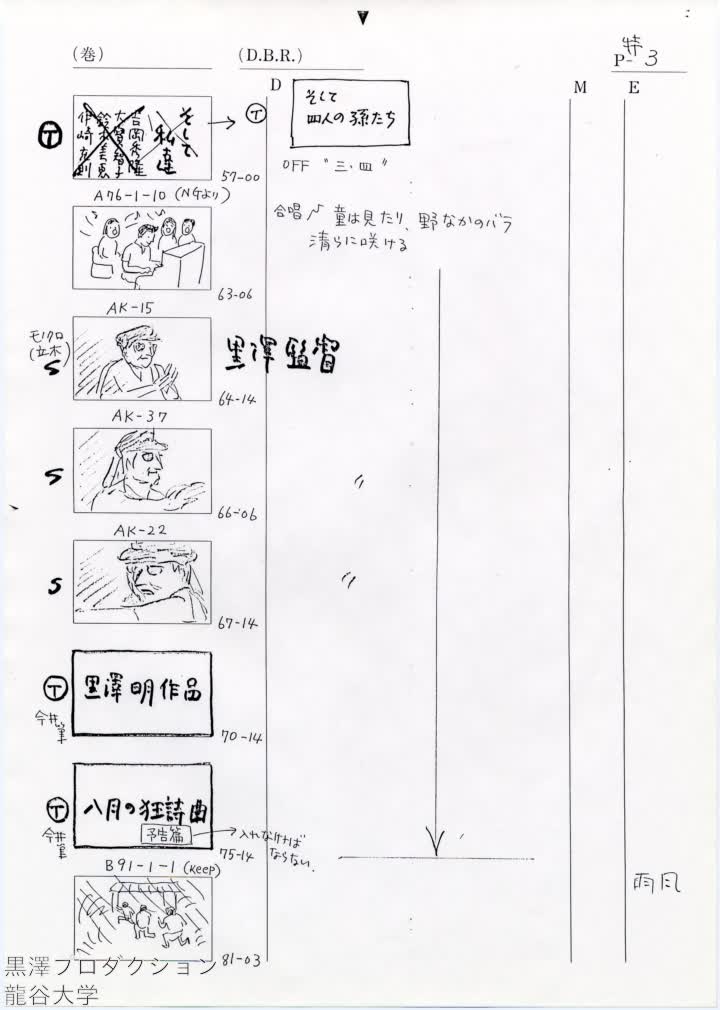 (巻)
(D.B.R.)
P-特3
D
M
E
Ⓣ
そして
私達
吉岡秀隆
大寶智子
鈴木美恵
伊崎充則
→ Ⓣ
そして
四人の孫たち
57-00
OFF "三・四"
A76-1-10 (NGより)
合唱 童は見たり、野なかのバラ
清らに咲ける
63-06
AK-15
モノクロ
(立木)
S
黒澤監督
64-14
AK-37
S
〃
66-06
AK-22
S
〃
67-14
Ⓣ
今井筆
黒澤明作品
70-14
Ⓣ
今井筆
八月の狂詩曲
予告篇
→入れなければ
ならない.
75-14
B91-1-1 (Keep)
雨風
81-03
黒澤プロダクション
龍谷大学